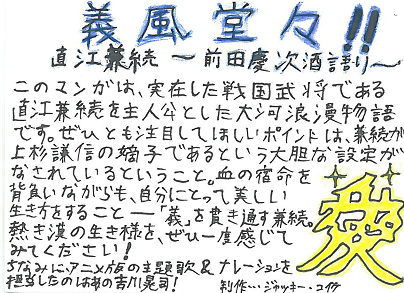 義風堂々!!
直江兼続 ～前田慶次酒語り～
このマンガは、実在した戦国武将である
直江兼続を主人公とした大河浪漫物語
です。ぜひとも注目してほしいポイントは、兼続が
上杉謙信の嫡子であるという大胆な設定が
なされているということ。血の宿命を
背負いながらも、自分にとって美しい
生き方をすること―「義」を貫き通す兼続。
熱き漢の生き様を、ぜひ一度感じて
みてください!
ちなみに、アニメ版の主題歌&ナレーションを
担当したのはあの吉川晃司!
制作…ジャッキー・
愛